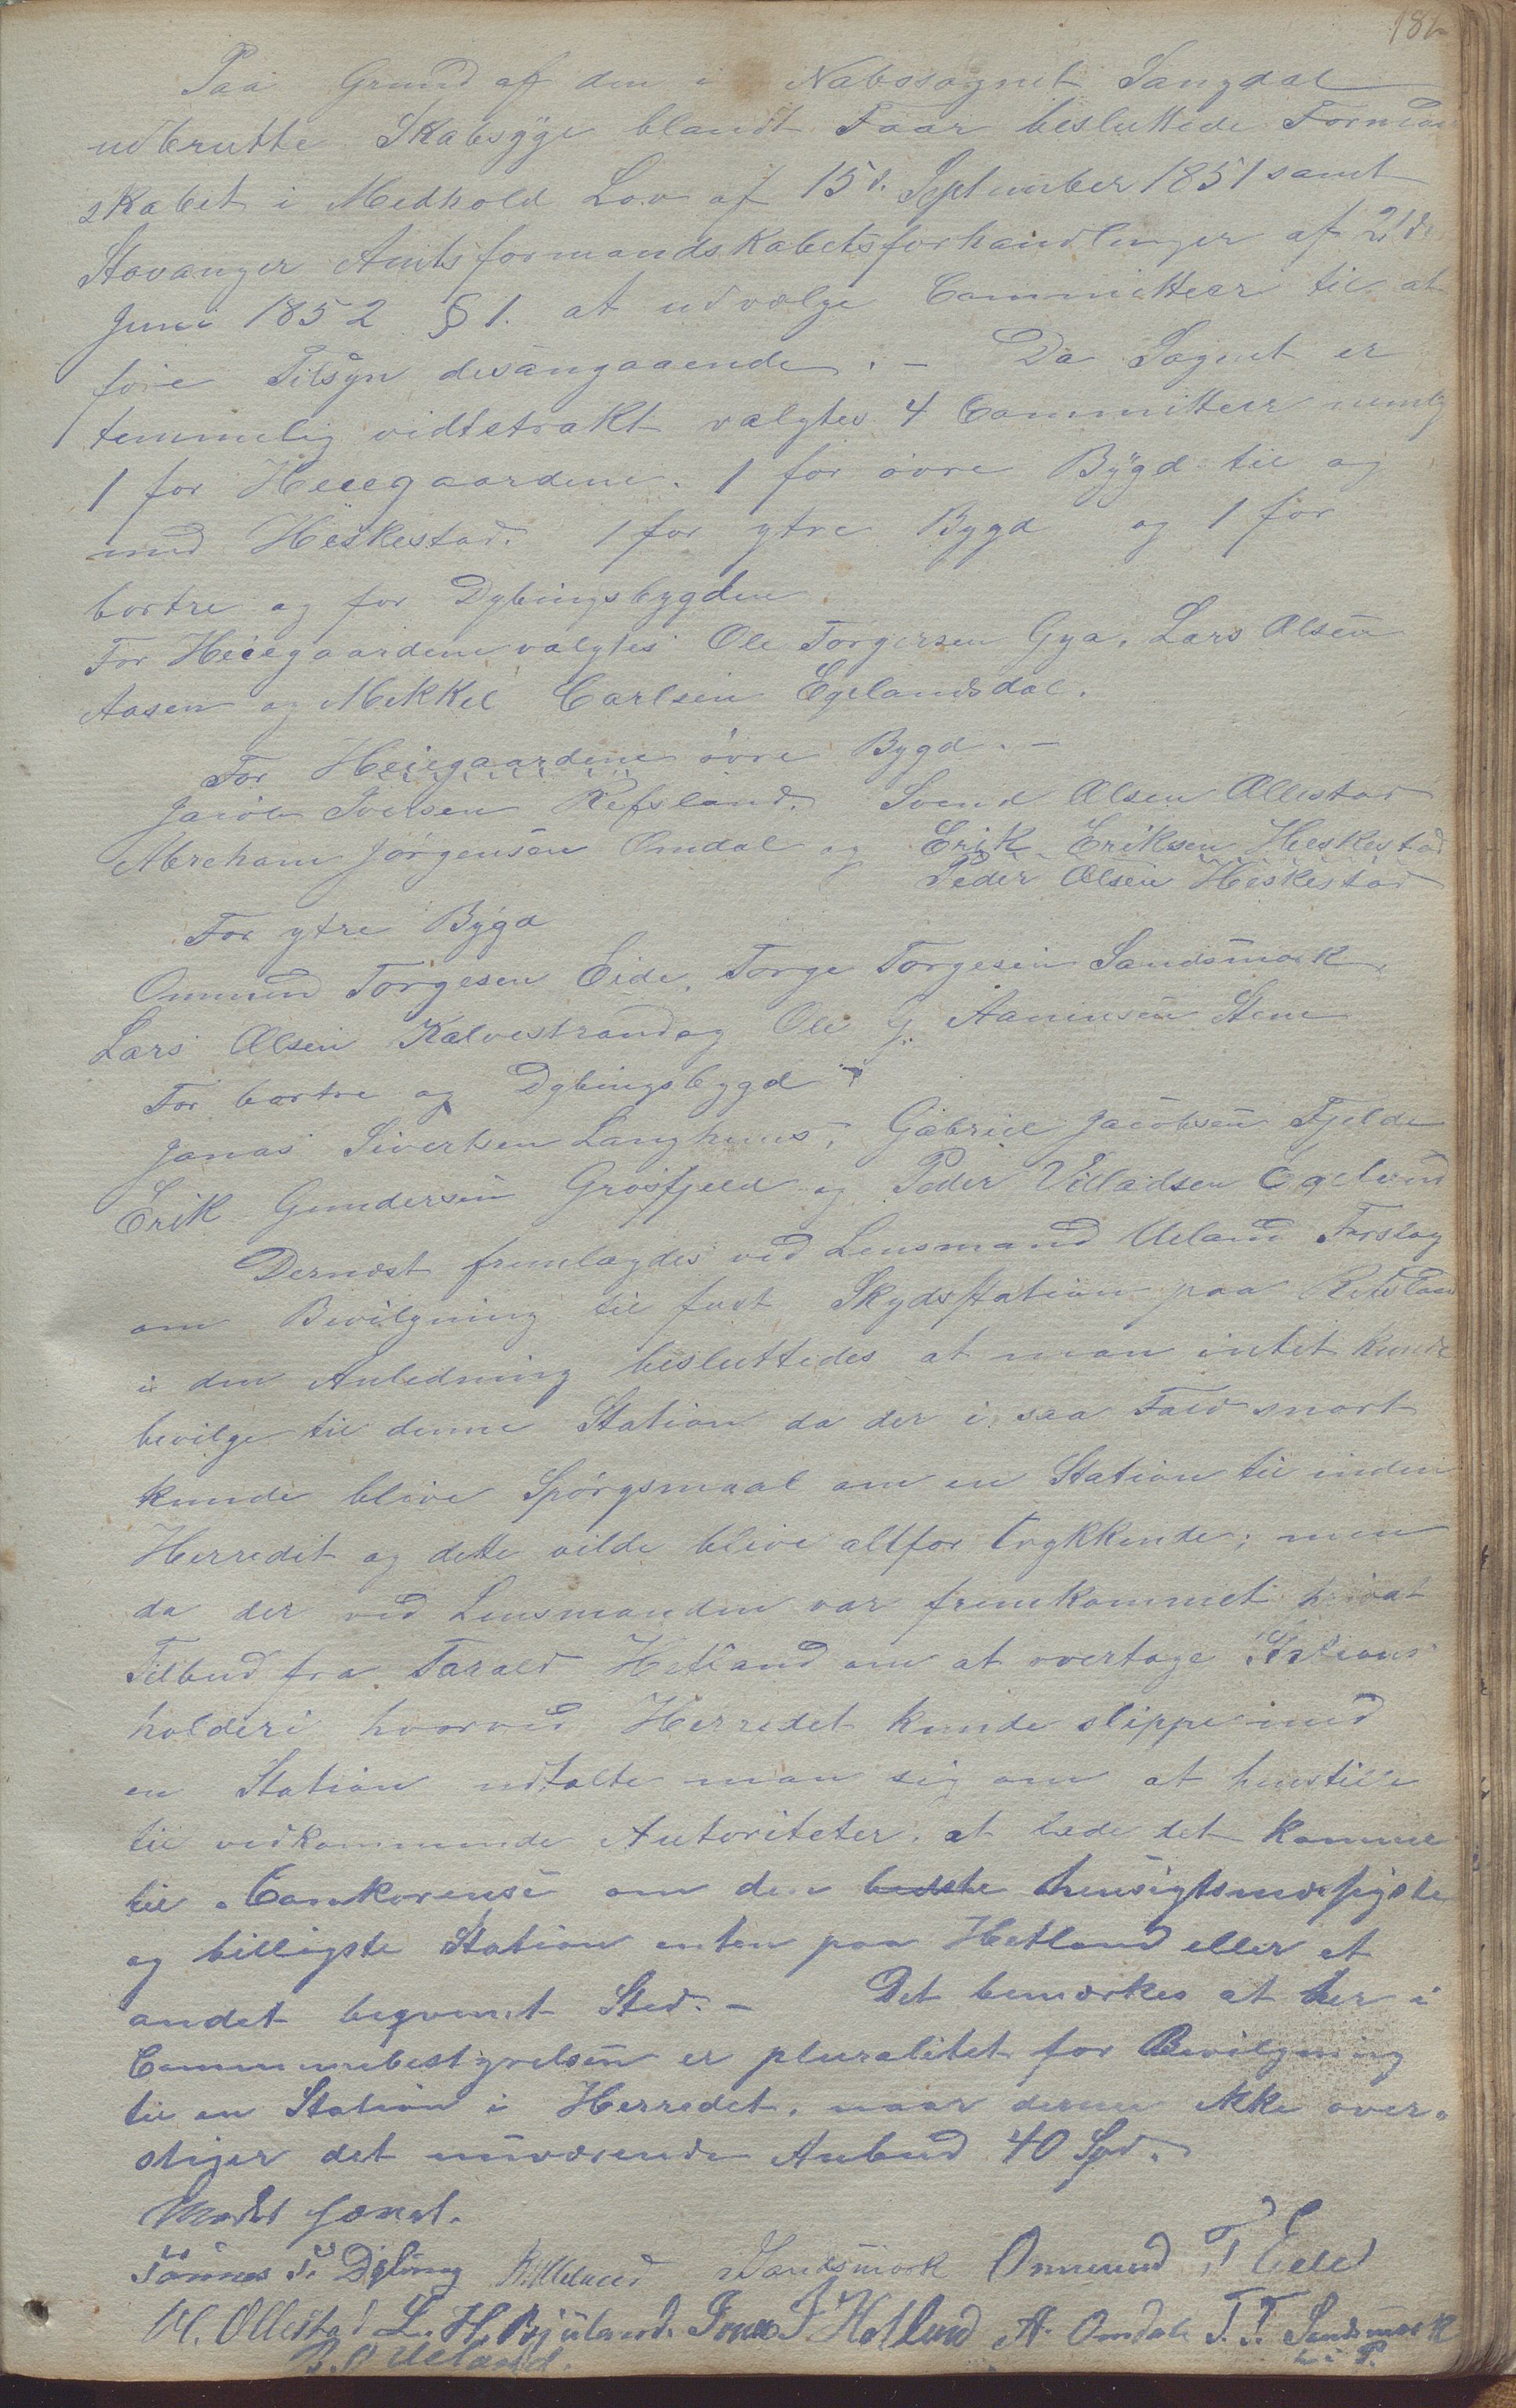 Paa Grund af den i Nabosognet Sangdal
udbrutte Skabsyge blandt Faar besluttede Formand
skabet i Medhold Lov af 15d. September 1851 samt
Stavanger Amtsformandskabetsforhandlinger af 21de
Juni 1852 § 1. at udvælge Committeer til at
føre Tilsyn desangaaende. - Da Sognet er
temmelig vidtstrakt valgtes 4 Committeer nemlig
1 for Heiegaardene. 1 for øvre Bygd til og
med Heskestad. 1 for ytre Bygd og 1 for
bortre og for Dybingsbygden.
For Heiegaardene valgtes Ole Torgersen Gya, Lars Olsen
Aasen og Mikkel Carlsen Egelandsdal.
For Heiegaardene øvre Bygd. -
Jacob Iversen Refsland. Svend Olsen Ollestad
Abreham Jørgensen Omdal og Erik Eriksen Heskestad
Peder Olsen Heskestad
For ytre Bygd
Ommund Torgesen Eide, Torge Torgesen Sandsmark,
Lars Olsen Kalvestrand og Ole G. Aanensen Stene
For bortre og Dybingsbygd
Jonas Sivertsen Langhuus, Gabriel Jacobsen Fjelde
Erik Gundersen Grøsfjeld og Peder Villadsen Egeland
Dernæst fremlagdes ved Lensmand Ueland Forslag
om Bevilgning til fast Skydsstation paa Refsland
i den Anledning besluttedes at man intet kunde
bevilge til denne Station da der i saa Fald snart
kunde blive Spørgsmaal om en Station til inden
Herredet og dette vilde blive altfor trykkende; men
da der ved Lensmanden var fremkommet privat
Tilbud fra Tarald Hetland om at overtage Stations
holderi hvorved Herredet kunde slippe med
en Station udtalte man sig om at henstille
til vedkommende Autoriteter, at lade det komme
til Conkorense om den bedste hensigtsmæssigste
og billigste Station enten paa Hetland eller et
andet beqvemt Sted. - Det bemærkes at her i
Communebestyrelsen er pluralitet for Bevilgning
til en Station i Herredet, naar denne ikke over-
stiger det nuværende Anbud 40 Spd.
Mødet hævet.
Tønnes T. Dybing Ueland Sandsmark Ommund T Eide
W. Ollestad L. H. Bjuland. Jonas J Hetland A. Omdal T. T. Sandsmark
B. O Ueland. m. i P.